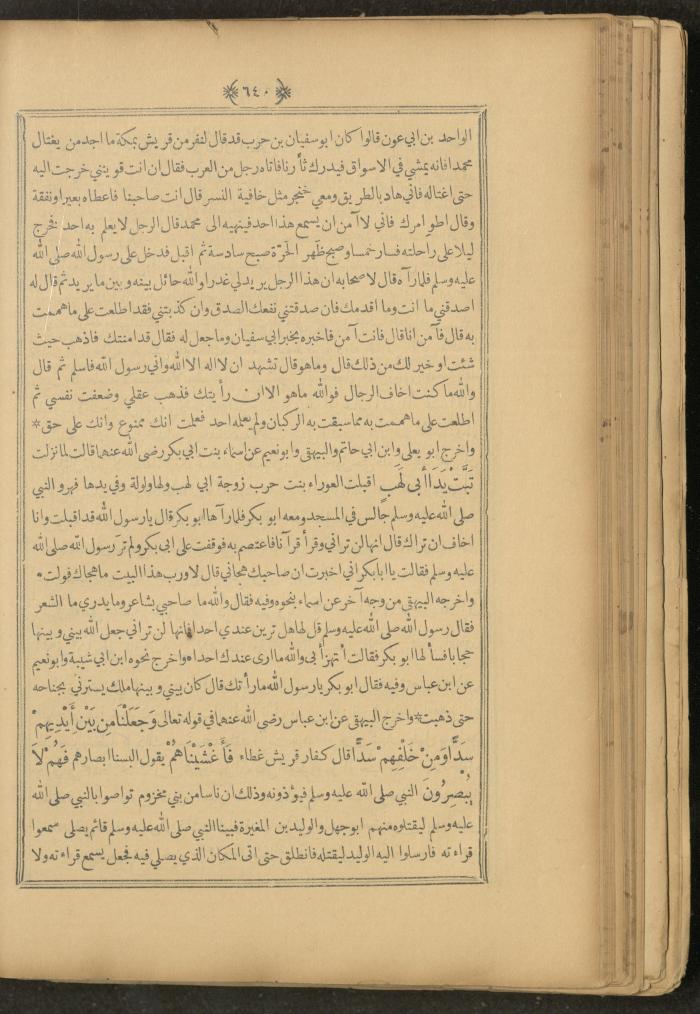 ﴿٦٤٠﴾
الواحد بن ابي عون قالوا كان ابو سفيان بن حرب قد قال لنفر من قريش بمكة ما احد من يغتال
محمدا فانه يمشي في الاسواق فيدرك ثأرنا فاتاه رجل من العرب فقال ان انت قويتني خرجت اليه
حتى اغتاله فاني هاد بالطريق ومعي خنجر مثل خافية النسر قال انت صاحبنا فاعطاه بعيرا ونفقة
وقال اطو امرك فاني لا آمن ان يسمع هذا احد فينهيه الى محمد قال الرجل لا يعلم به احد فخرج
ليلا على راحلته فسار خمسا وصبح ظهر الحَرّة صبح سادسة ثم اقبل فدخل على رسول الله صلى الله
عليه وسلم فلما رآه قال لاصحابه ان هذا الرجل يريد لي غدرا والله حائل بينه وبين ما يريد ثم قال له
اصدقني ما انت وما اقدمك فان صدقتني نفعك الصدق وان كذبتني فقد اطلعت على ما هممت
به قال فآمن انا قال فانت آمن فاخبره بخبر ابي سفيان وما جعل له فقال قد امنتك فاذهب حيث
شئت او خير لك من ذلك قال وما هو قال تشهد ان لا اله الا الله واني رسول الله فاسلم ثم قال
والله ما كنت اخاف الرجال فوالله ما هو الا ان رأيتك فذهب عقلي وضعفت نفسي ثم
اطلعت على ما هممت به مما سبقت به الركبان ولم يعلمه احد فعلمت انك ممنوع وانك على حق*
واخرج ابو يعلى وابن ابي حاتم والبيهقي وابو نعيم عن اسماء بنت ابي بكر رضى الله عنهما قالت لما نزلت
تَبَّتْ يَدَا أَبِى لَهَبٍ اقبلت العوراء بنت حرب زوجة ابي لهب ولها ولولة وفي يدها فهر والنبي
صلى الله عليه وسلم جالس في المسجد ومعه ابو بكر فلما رآها ابو بكر قال يا رسول الله قد اقبلت وانا
اخاف ان تراك قال انها لن تراني وقرأ قرآنا فاعتصم به فوقفت على ابى بكر ولم تر رسول الله صلى الله
عليه وسلم فقالت يا ابا بكر اني اخبرت ان صاحبك هجاني قال لا ورب هذا البيت ما هجاك فولت*
واخرجه البيهقي من وجه آخر عن اسماء بنحوه وفيه فقال والله ما صاحبي بشاعر وما يدري ما الشعر
فقال رسول الله صلى الله عليه وسلم قل لها هل ترين عندي احدا فانها لن تراني جعل الله بيني وبينها
حجابا فسألها ابو بكر فقالت أتهزأ بى والله ما ارى عندك احدا* واخرج نحوه ابن ابي شيبة وابو نعيم
عن ابن عباس وفيه فقال ابو بكر يا رسول الله ما رأتك قال كان بيني وبينها ملك يسترني بجناحه
حتى ذهبت* واخرج البيهقي عن ابن عباس رضى الله عنهما في قوله تعالى وَجَعَلْنَا مِن بَيْنِ أَيْدِيهِمْ
سَدًّا وَمِنْ خَلْفِهِمْ سَدًّا قال كفار قريش غطاء فَأَغْشَيْنَاهُمْ يقول البسنا ابصارهم فَهُمْ لَا
يُبْصِرُونَ النبي صلى الله عليه وسلم فيؤذونه وذلك ان ناسا من بني مخزوم تواصوا بالنبي صلى الله
عليه وسلم ليقتلوه منهم ابو جهل والوليد بن المغيرة فبينا النبي صلى الله عليه وسلم قائم يصلى سمعوا
قراءته فارسلوا اليه الوليد ليقتله فانطلق حتى اتى المكان الذي يصلي فيه فجعل يسمع قراءته ولا